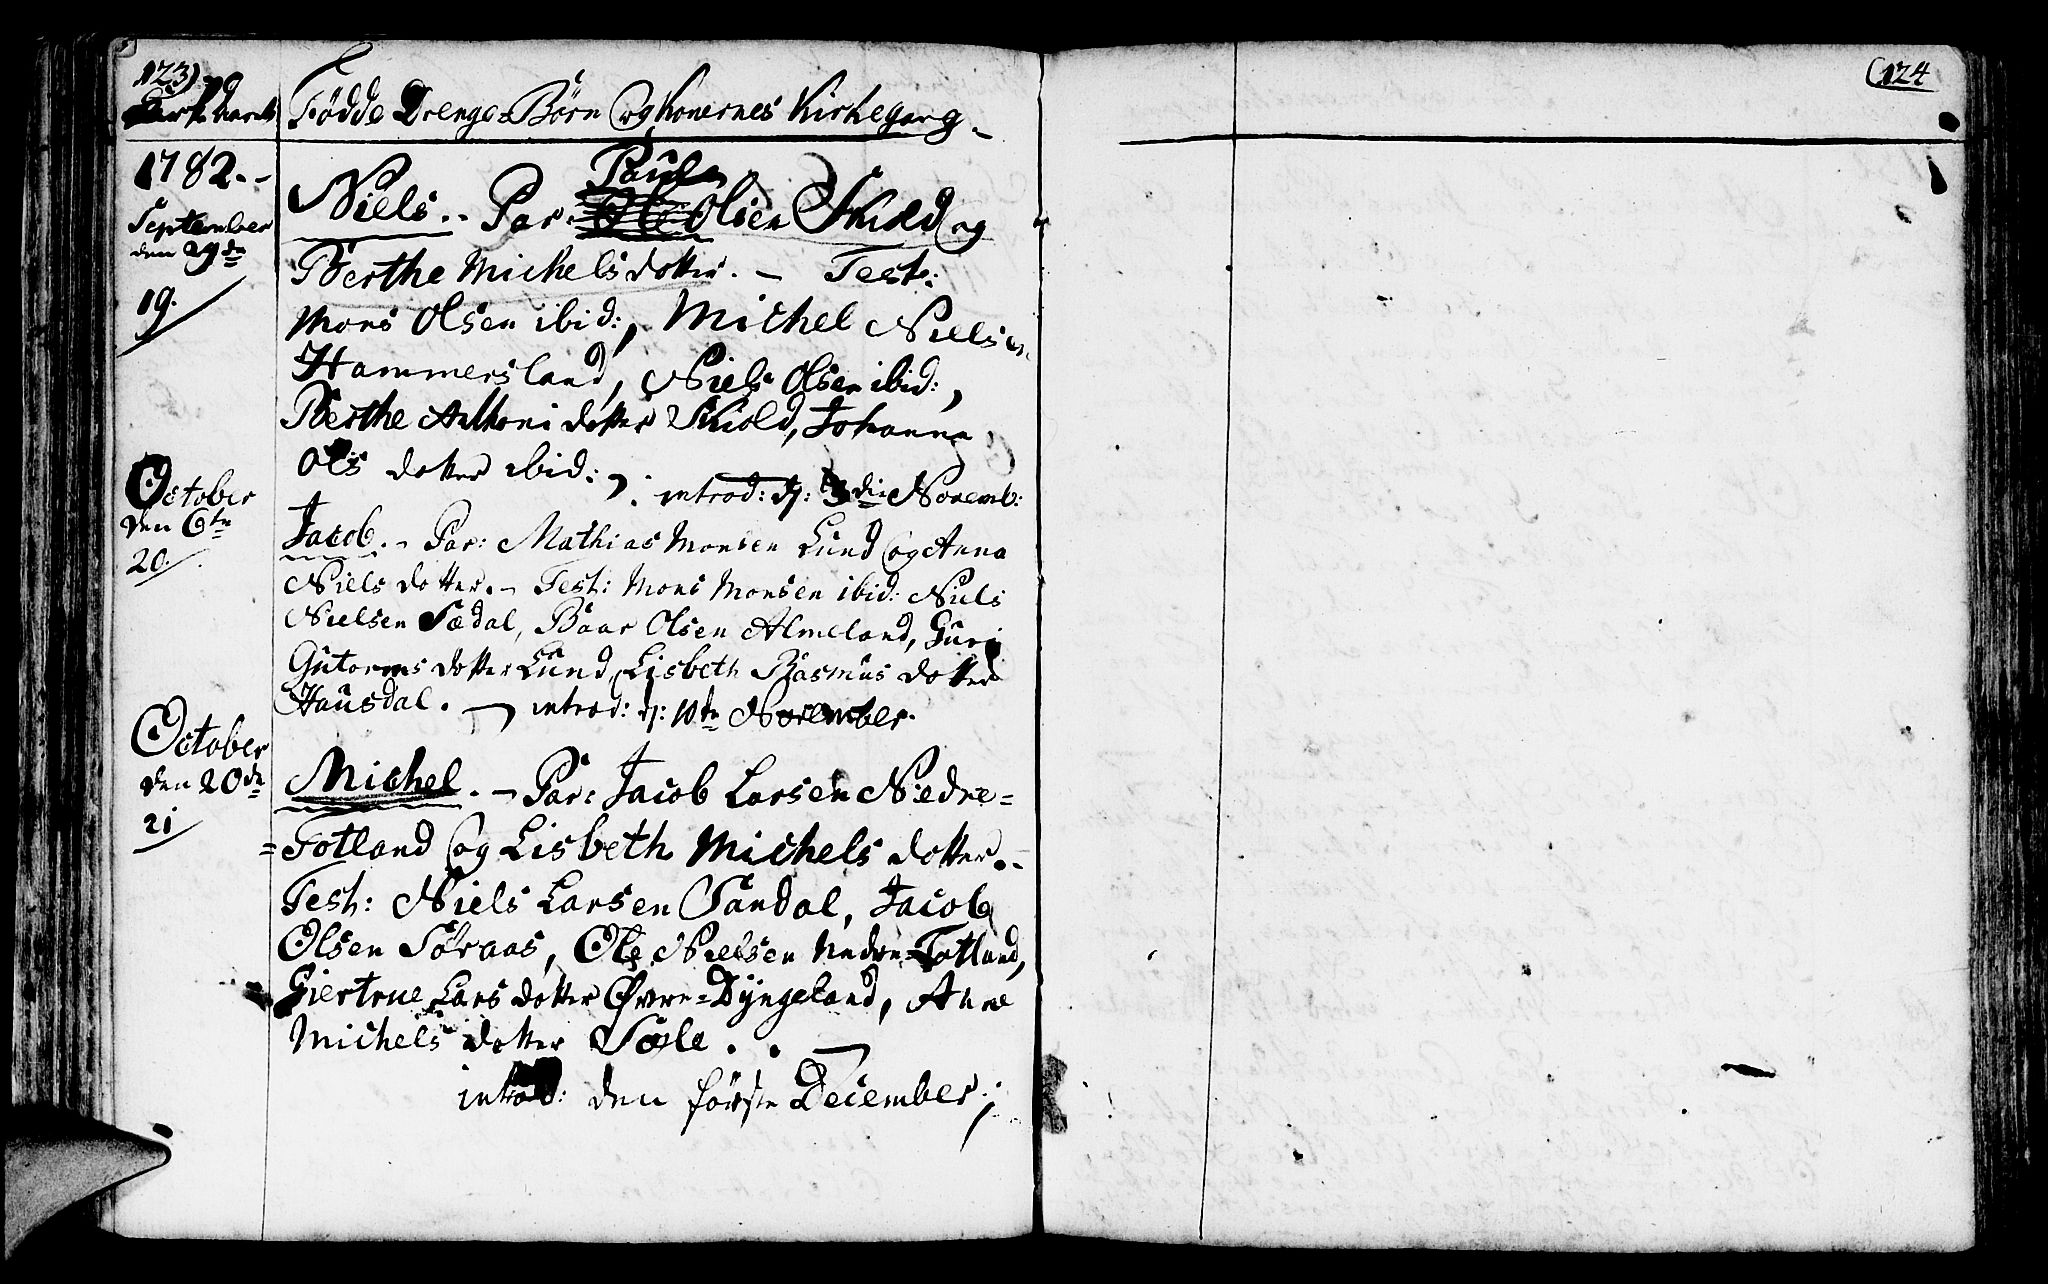 123)
Fødde Drenge-Børn og Konernes Kirkegang.
1782.-
September
den 29de
19.
Paul
Niels.- Par: Ole Olsen Skiæld og
Berthe Michelsdotter. - Test:
Mons Olsen ibid:, Michel Nielsen
Hammersland, Niels Olsen ibid:,
Berthe Anthoni dotter Skiold, Johanna
Ols dotter ibid: introd: d: 3die Novemb:
October
den 6te
20.
Jacob.- Par: Mathias Monsen Lund og Anna
Niels dotter.- Test: Mons Monsen ibid: Niels
Nielsen Sædal, Baar Olsen Almeland, Guri
Gutorms dotter Lund, Lisbeth Rasmus dotter
Hausdal. - introd: d: 10de November.
October
den 20de
21
Michel. - Par: Jacob Larsen Nedre=
=Totland og Lisbeth Michels dotter.-
Test: Niels Larsen Sandal, Jacob
Olsen Søraas, Ole Nielsen Nedre=Totland,
Giertrue Lars dotter Øvre=Dyngeland, Anne
Michels dotter Sæle. . -
introd: den første December;
(124